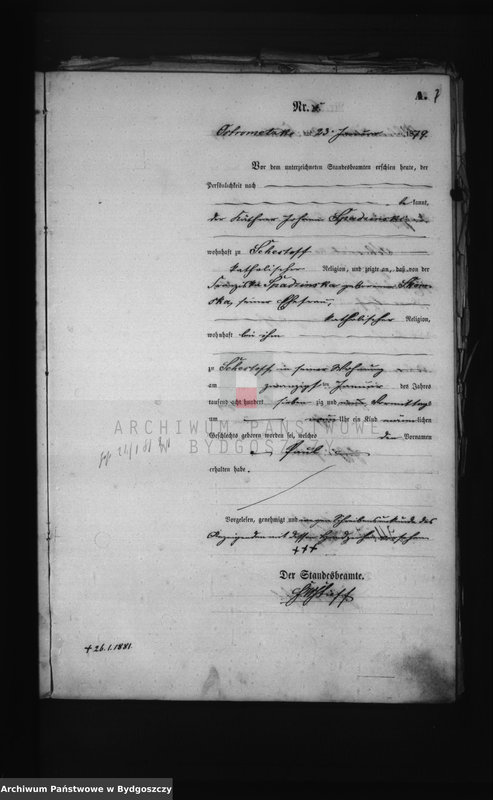 A.
Nr. 5
Ostrometzko am 23. Januar 1879.
Vor dem unterzeichneten Standesbeamten erschien heute, der
Persönlichkeit nach
be kannt,
der
wohnhaft zu
katholischer Religion, und zeigte an, daß von der
geborene
seiner Ehefrau,
katholischer Religion,
wohnhaft bei ihm
zu in seiner Wohnung
am zwanzigsten Januar des Jahres
tausend acht hundert sieben zig und neun Vormittags
um Uhr ein Kind männ lichen
Geschlechts geboren worden sei, welches den Vornamen
Paul
erhalten habe.
ARCHIWUM PAŃSTWOWE
W BYDGOSZCZY
Vorgelesen, genehmigt und wegen Schreibensunkunde des
Anzeigenden mit dessen Handzeichen versehen
+++
Der Standesbeamte.
+ 26.1.1881.
Archiwum Państwowe w Bydgoszczy